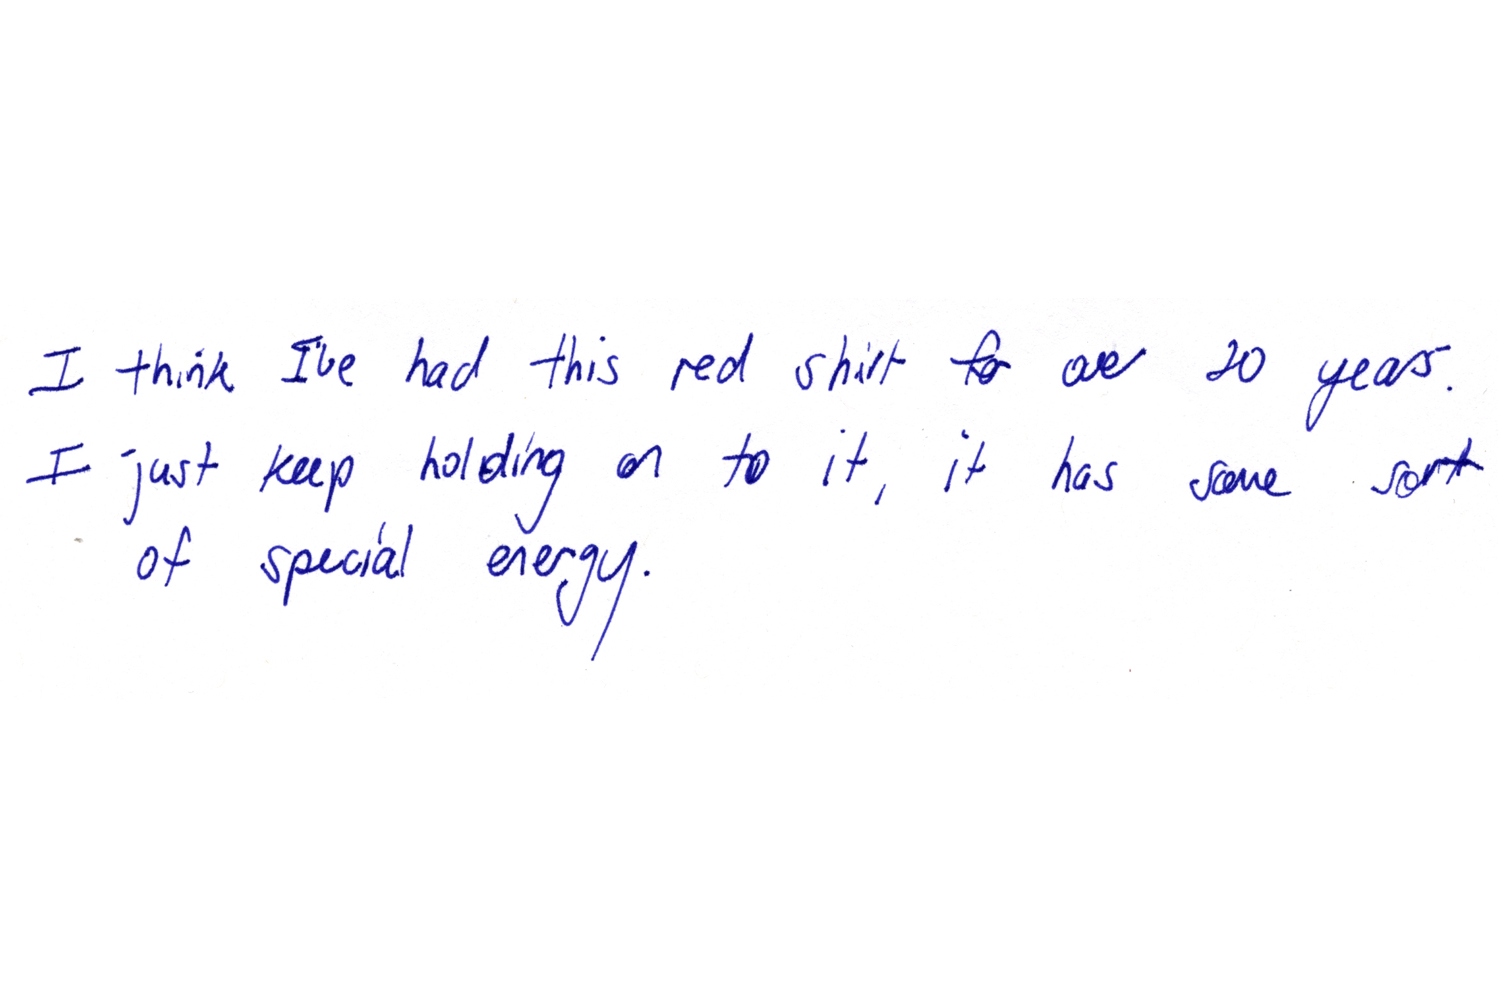 I think I've had this red shirt for over 20 years.
I just keep holding on to it, it has some sort
of special energy.